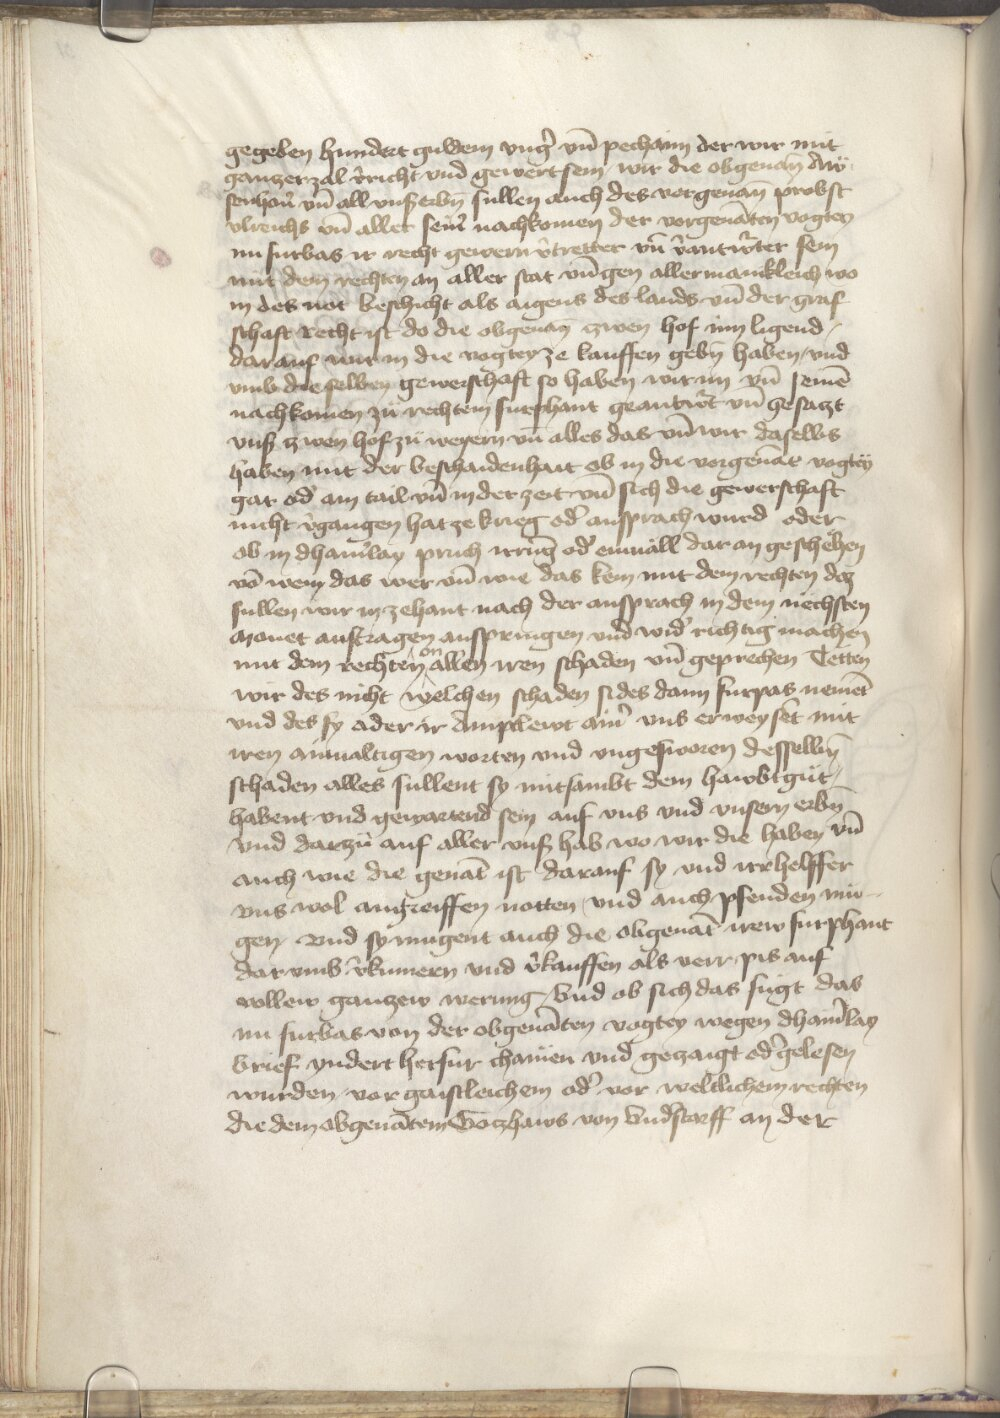 gegeben hundert guldem vngˀ vn̄ pechaim der wir mit
ganczer zal vˀricht vnd gewert sein / wir die obgenan̄ Aw
senhouˀ vn̄ all vnsˀ erbn̄ sullen auch des vorgenan probst
vlreichs vn̄ aller seinˀ nachkomen der vorgenāten vogtey
nu furbas ir recht gewern vˀtretter vn̄ vˀantwˀter sein
mit dem rechten an aller stat vn̄ gen allermanikleich wo
in des not beschicht als aigens des lands vn̄ der graf
schaft recht ist do die obgenan̄ zwen hof inn ligend /
darauf wir in die vogtey ze kauffen gebn̄ haben / vnd
vmb die selben gewerschaft so haben wir im vn̄ seinē
nachkomen zu rechtem furphant geantwˀt vn̄ gesaczt
vnsˀ zwen hof zu weyern vn̄ alles das vn̄ wir daselbs
haben mit der beschaidenhait ob in die vorgenāt vogtey
gar odˀ ain tail vn̄ in der zeit vn̄ sich die gewerschaft
nicht vˀgangen hat ze krieg odˀ ansprach wurd oder
ob in dhainˀlay pruch irrūg odˀ inuäll daran geschehen
vō wem das wer vn̄ wie das kem mit dem rechten daz
sullen wir in zehant nach der ansprach in dem nechsten
Monet austragen auspringen vnd widˀ richtig machen
mit dem rechten on allen iren schaden vn̄ geprechen Tetten
wir des nicht welchen schaden si des dann furpas nemēt
vnd des sy oder ir Amptlewt ainˀ vns erweyset mit
iren ainualtigen worten vnd vngesworen desselbn̄
schaden alles sullent sy mitsambt dem hawbtgut /
habent vnd gewartend sein auf vns vnd vnsern erbn̄
vnd darzu auf aller vnsˀ hab wo wir die haben vn̄
auch wie die genāt ist darauf sy vnd ir helffer
vns wol angreiffen notten vnd auch pfenden mu-
gen / Vnd sy mugent auch die obgenāt irew furphant
darvmb vˀkumern vnd vˀkauffen als verr pis auf
vollew ganczew werung / Vnd ob sich das fugt das
nu furbas von der obgenāten vogtey wegen dhainˀlay
brief yndert herfur chämen vnd geczaigt odˀ gelesen
wurden / vor gaistleichem odˀ vor weltlichem rechten
die dem obgenātem Goczhaws von Vndˀstorff an der